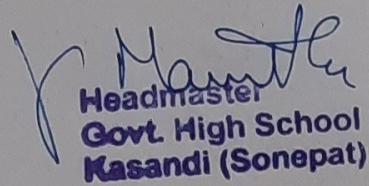 Headmaster
Govt. High School
Kasandi (Sonepat)